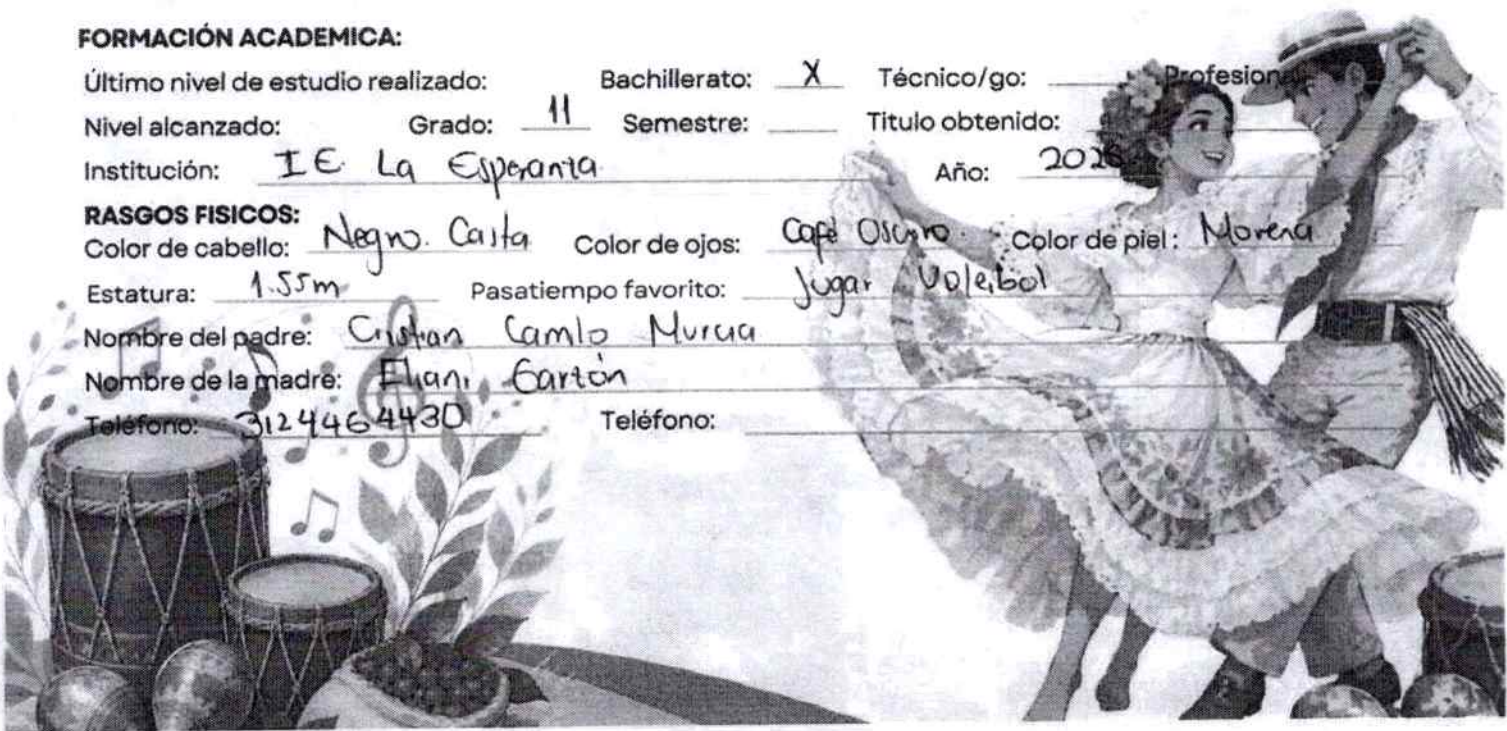 FORMACIÓN ACADEMICA:
Último nivel de estudio realizado: Bachillerato: X Técnico/go: Profesional
Nivel alcanzado: Grado: 11 Semestre: Titulo obtenido:
Institución: I E La Esperanza Año:
RASGOS FISICOS:
Color de cabello: Negro. Color de ojos: Café Oscuro. Color de piel: Morena
Estatura: 1.55m Pasatiempo favorito: Jugar Voleibol
Nombre del padre: Cristian Camlo Murcia
Nombre de la madre: Garzón
Teléfono: 3124464430 Teléfono: